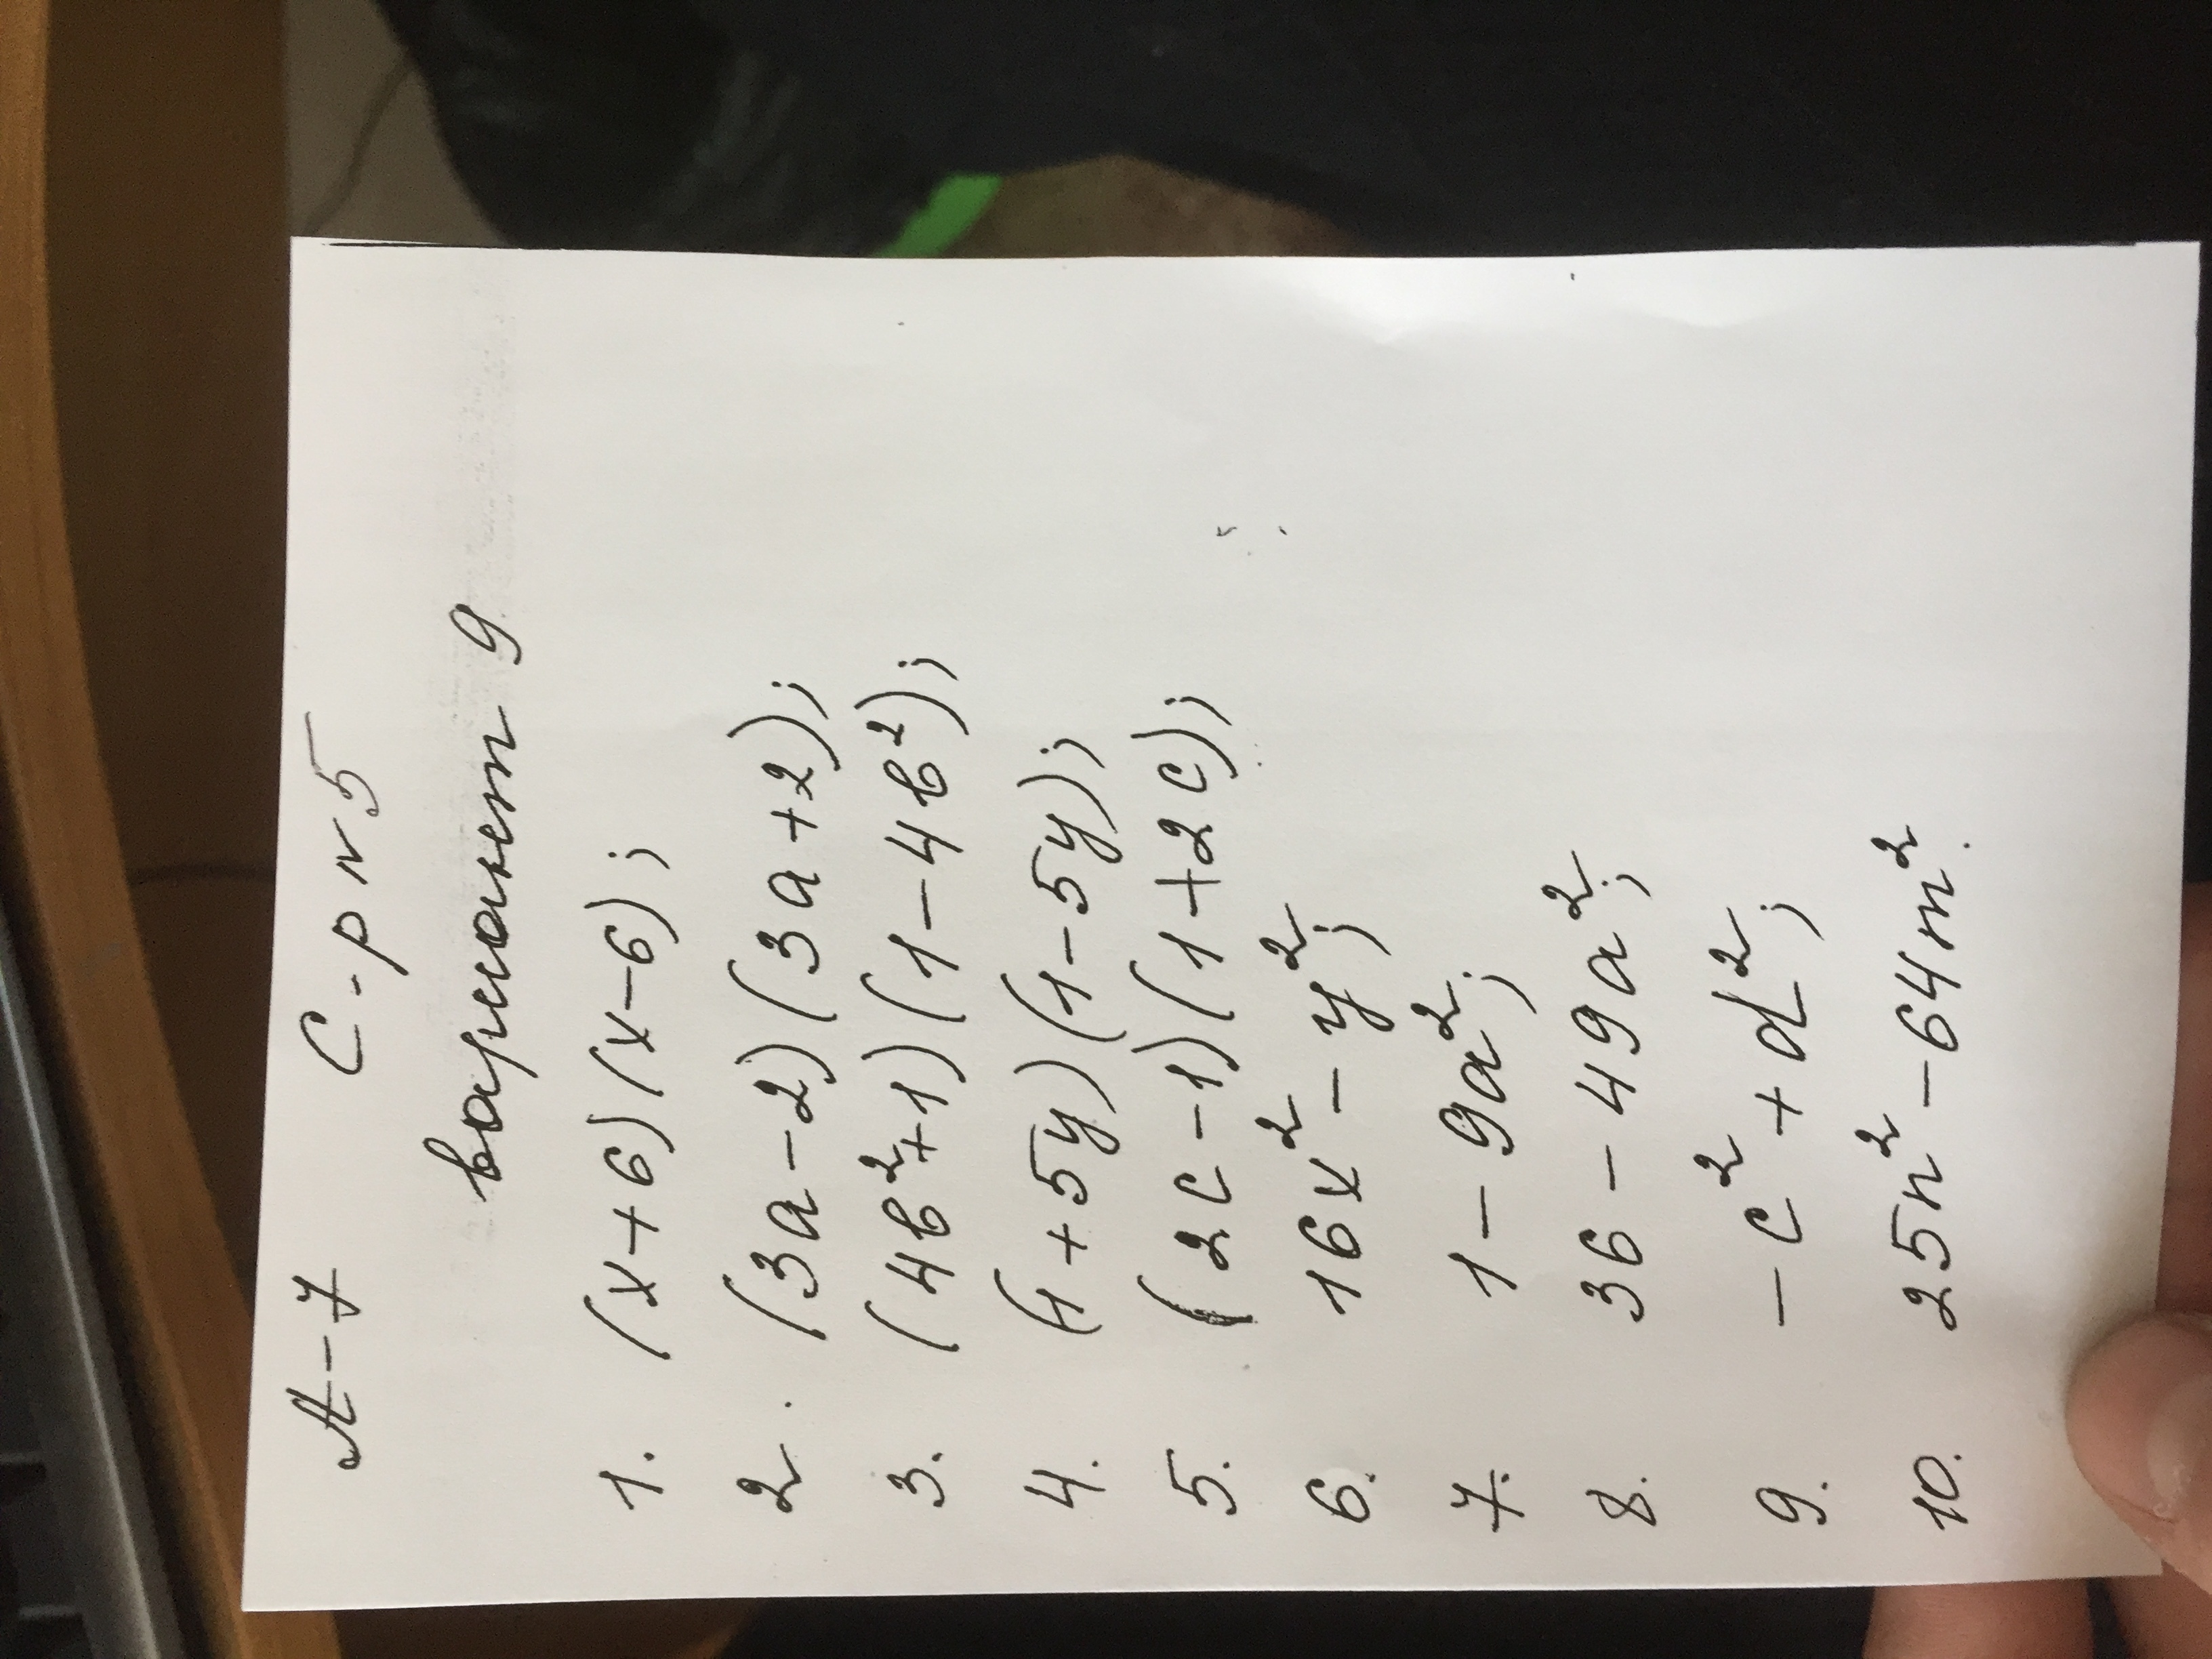 А-7 С-р №5
вариант 9
1. (x+6)(x-6);
2. (3a-2)(3a+2);
3. (4b²+1)(1-4b²);
4. (1+5y)(1-5y);
5. (2c-1)(1+2c);
6. 16x²-y²;
7. 1-9a²;
8. 36-49a²;
9. -c²+d²;
10. 25n²-64m².